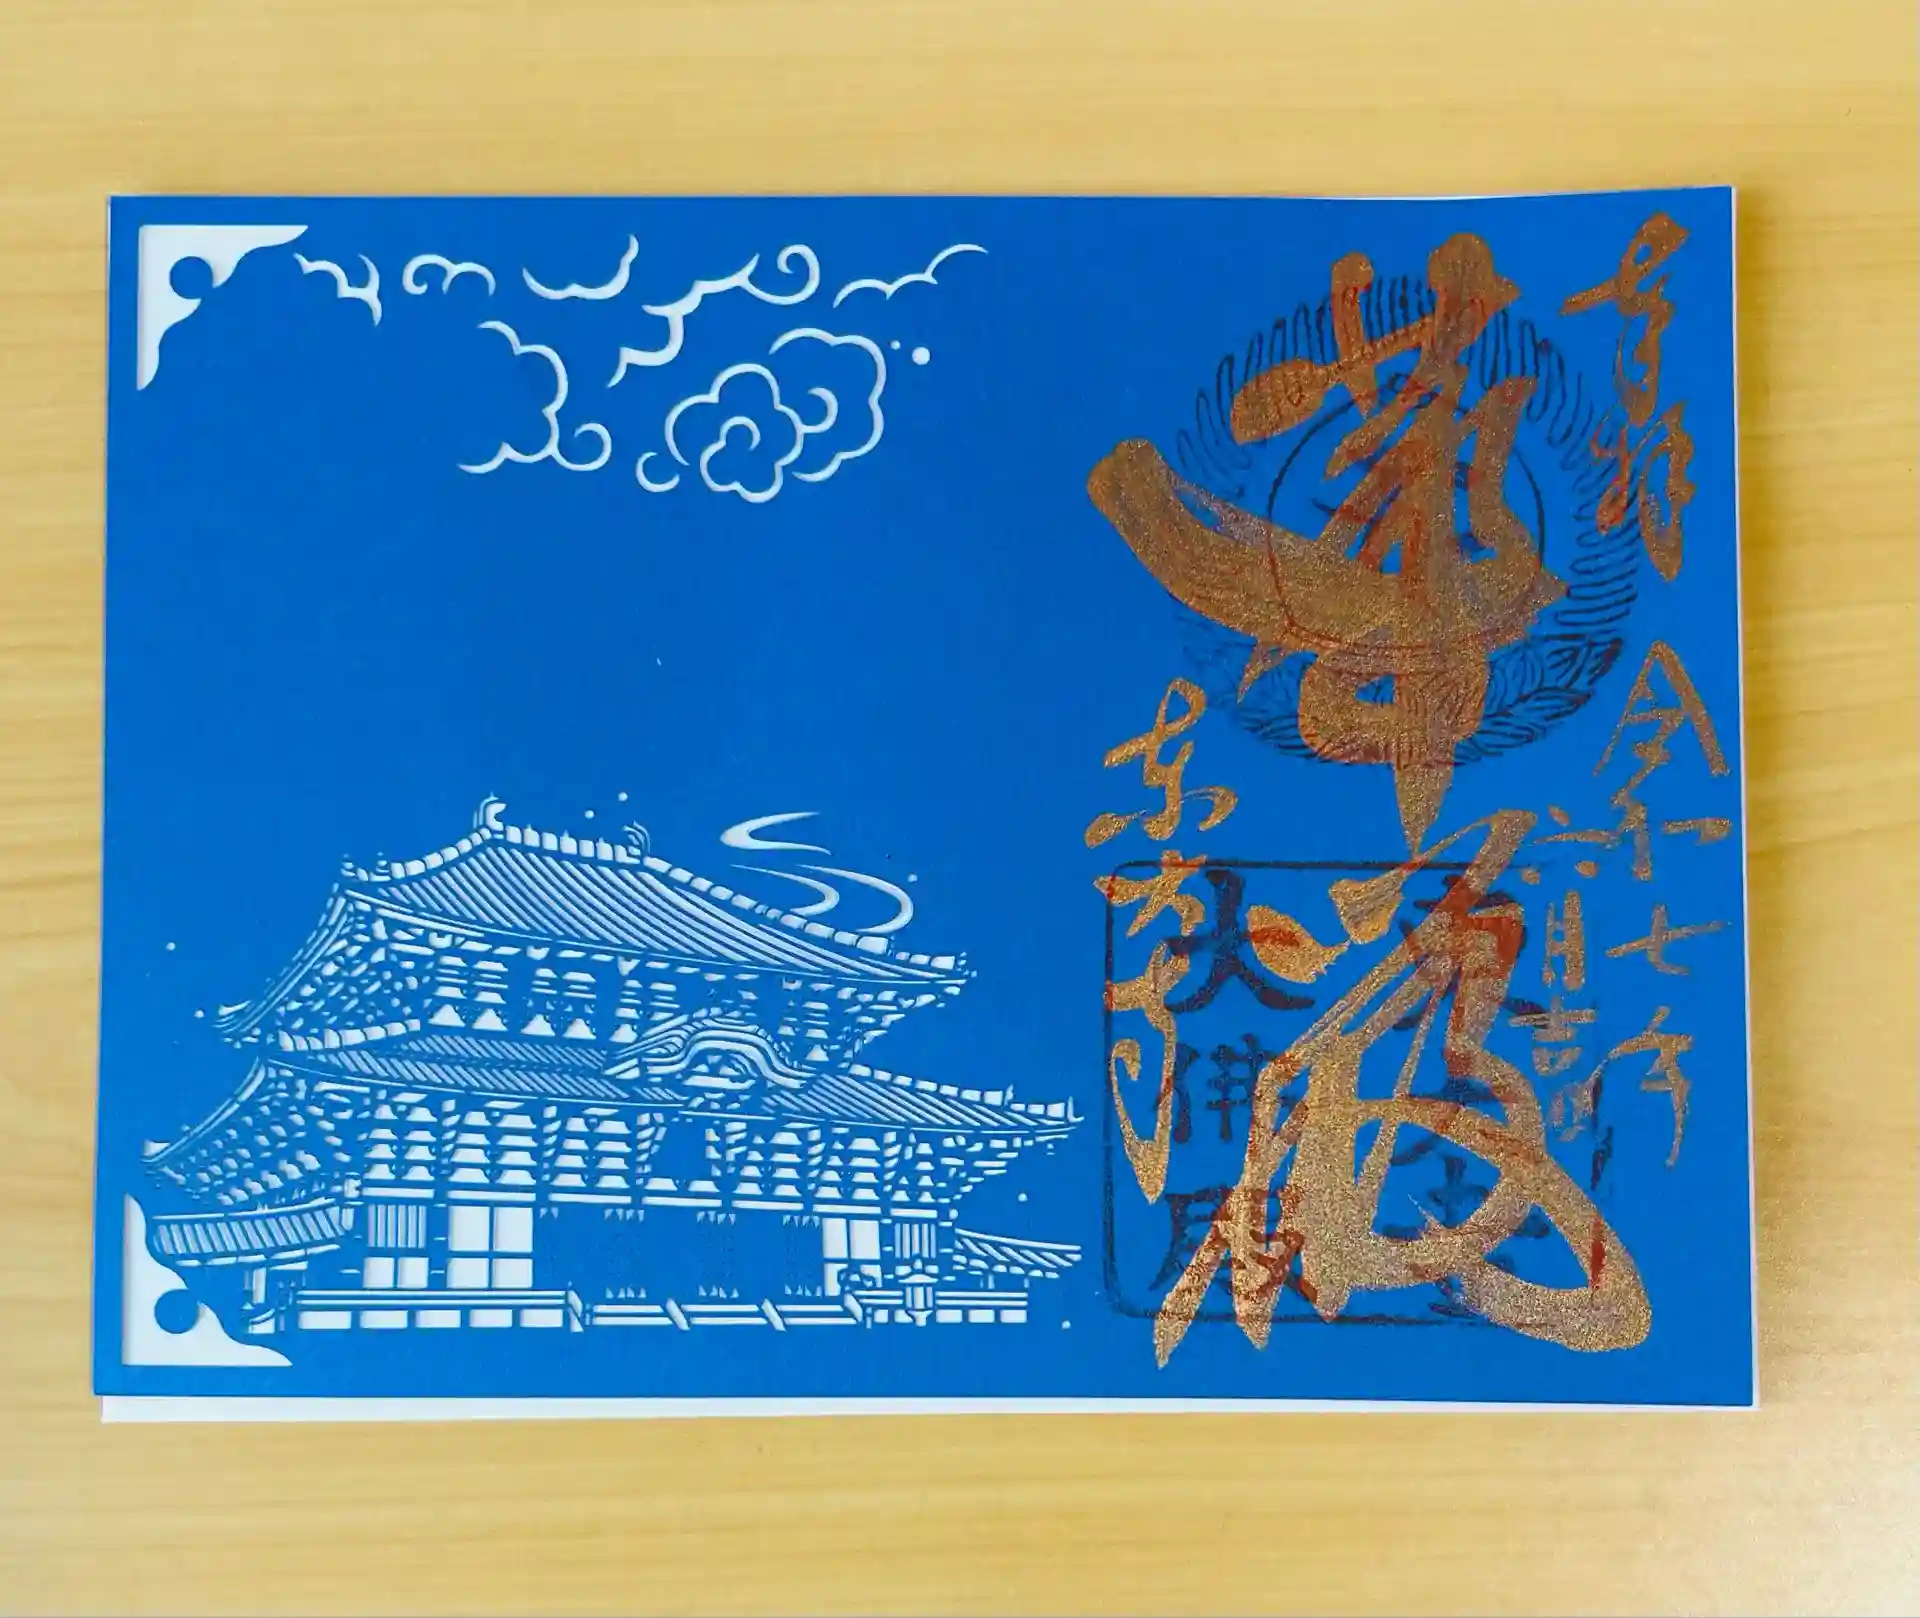 奉拝
令和七年
六月吉日
華厳
東大寺
大佛殿
東大寺